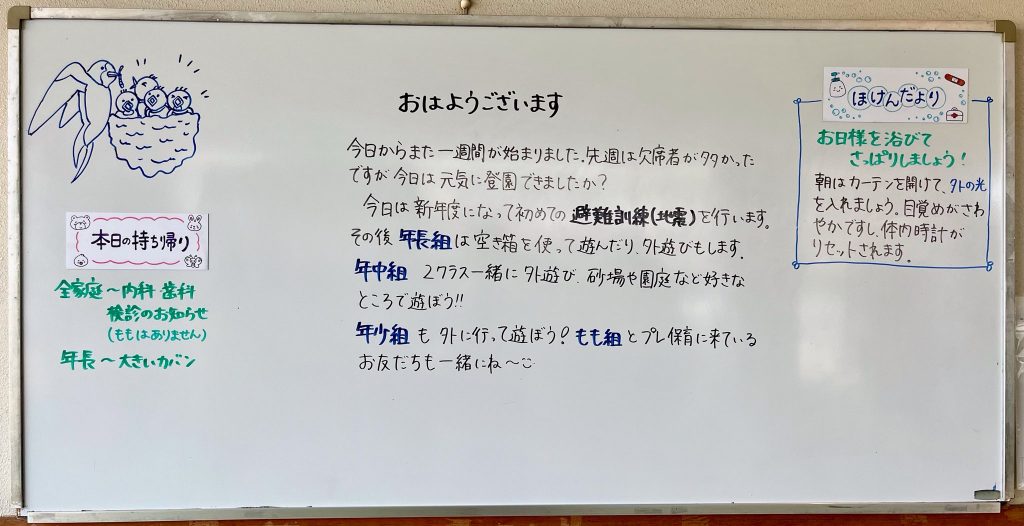 おはようございます
今日からまた一週間が始まりました。先週は欠席者が多かった
ですが今日は元気に登園できましたか？
今日は新年度になって初めての避難訓練(地震)を行います。
その後年長組は空き箱を使って遊んだり、外遊びもします。
年中組 2クラス一緒に外遊び、砂場や園庭など好きな
ところで遊ぼう!!
年少組も外に行って遊ぼう！もも組とプレ保育に来ている
お友だちも一緒にね～
本日の持ち帰り
全家庭～内科 歯科
検診のお知らせ
(ももはありません)
年長～大きいカバン
ほけんだより
お日様を浴びて
さっぱりしましょう！
朝はカーテンを開けて、外の光
を入れましょう。目覚めがさわ
やかですし、体内時計が
リセットされます。